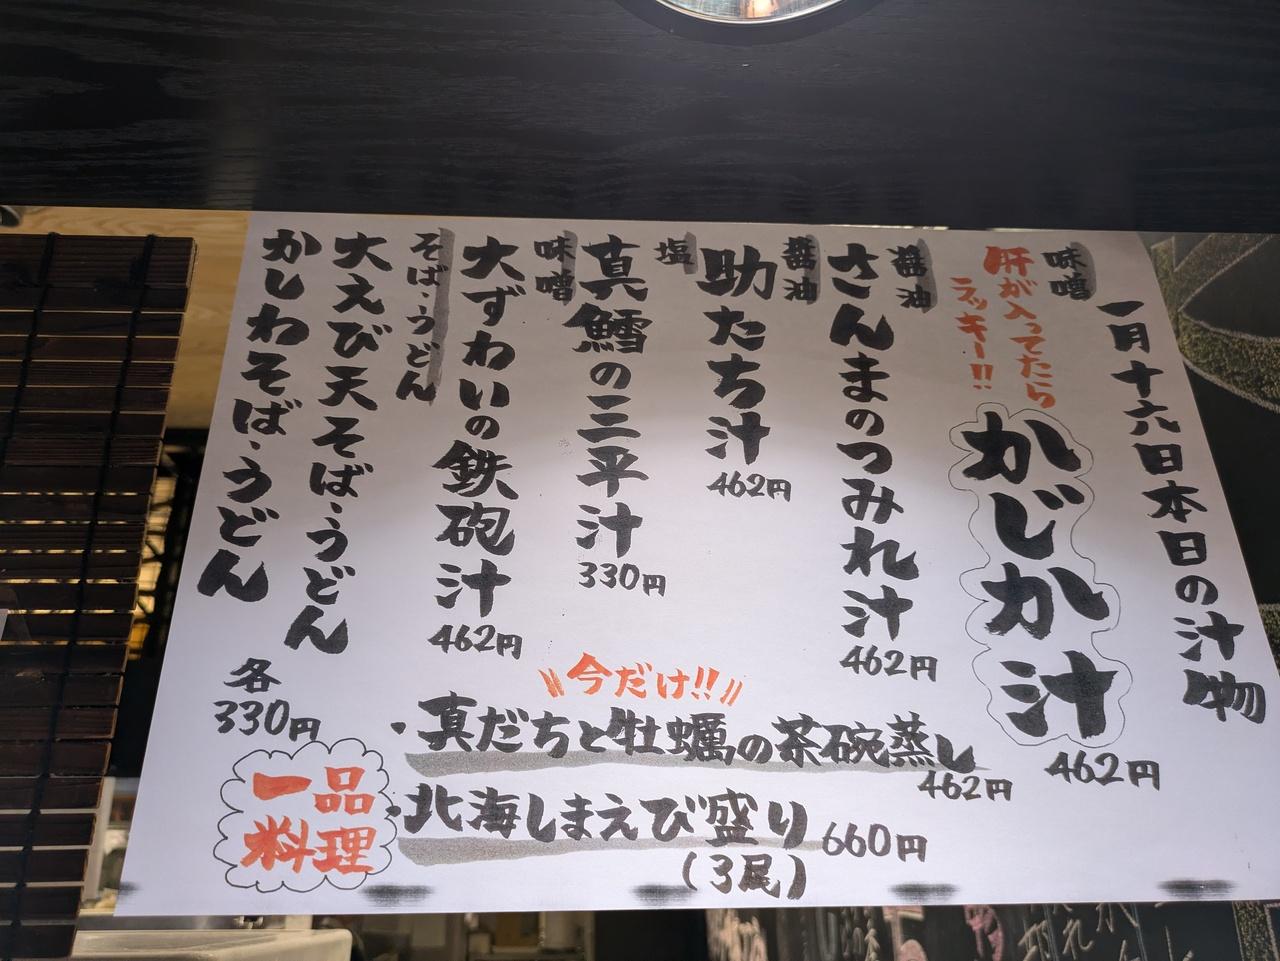 一月十六日本日の汁物
味噌
肝が入ってたら
ラッキー!!
かじか汁
462円
醤油
さんまのつみれ汁
462円
醤油
助たち汁
462円
塩
真鱈の三平汁
330円
味噌
大ずわいの鉄砲汁
462円
そば・うどん
大えび天そば・うどん
かしわそば・うどん
各
330円
今だけ!!
一品
料理
・真だちと牡蠣の茶碗蒸し
462円
・北海しまえび盛り 660円
(3尾)